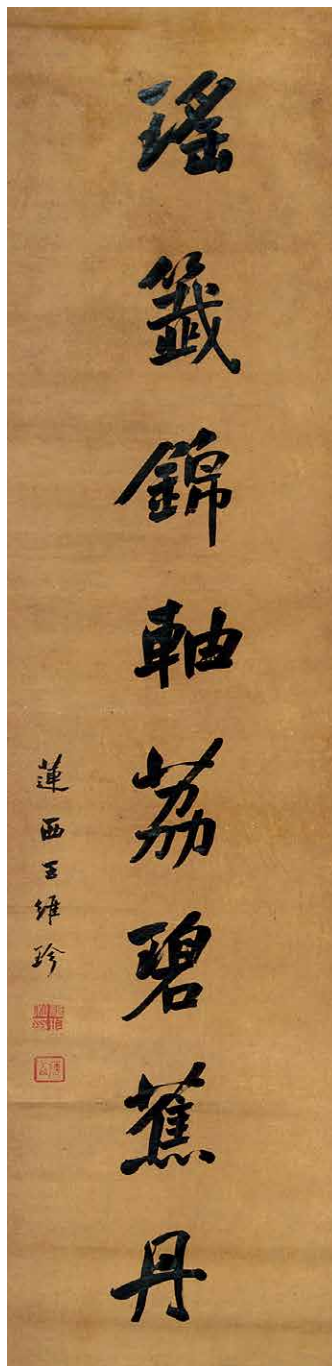 瑤籤錦軸荔碧蕉丹
蓮西王維珍